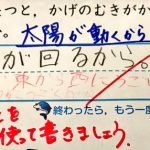 たつと、かげのむきがか
太陽が動くから
が回るから。
終わったら、もう一度
を
使って書きましょう。